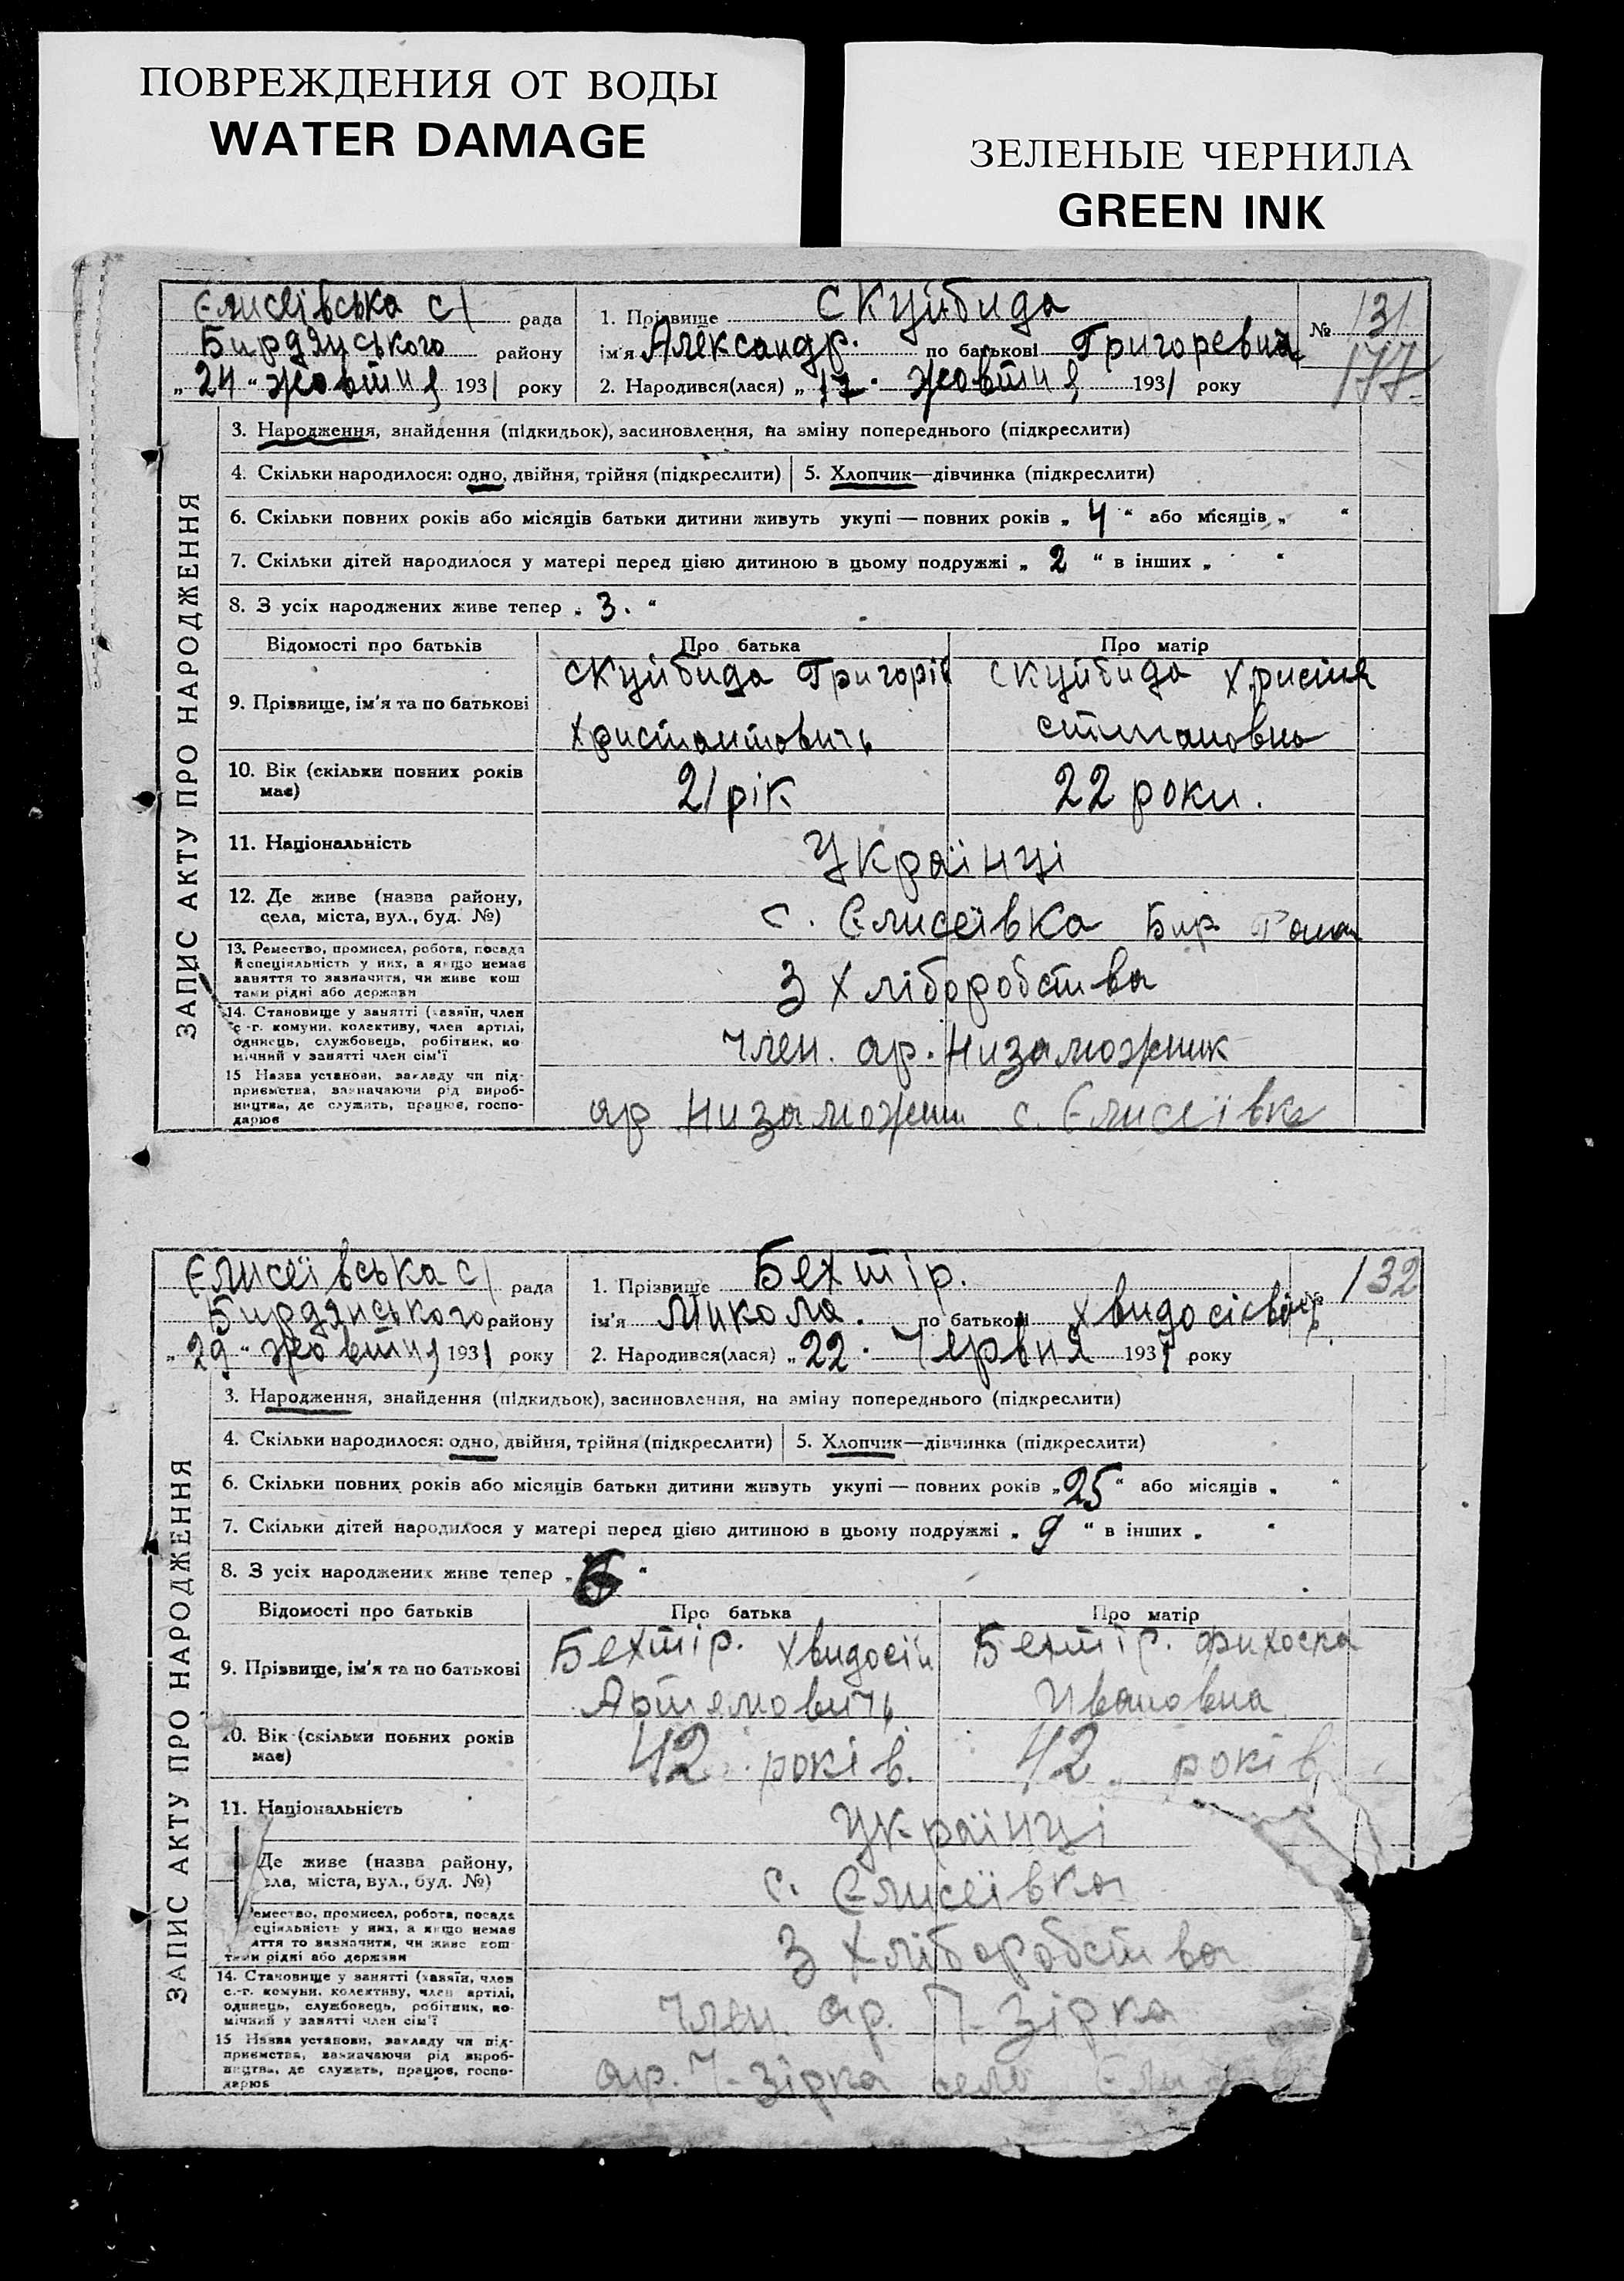 ПОВРЕЖДЕНИЯ ОТ ВОДЫ
WATER DAMAGE
ЗЕЛЕНЫЕ ЧЕРНИЛА
GREEN INK
ЗАПИС АКТУ ПРО НАРОДЖЕННЯ
Єлисеївська с/ рада
Бирдянського району
„ 24 “ жовтня 1931 року
1. Прізвище Скуйбида
ім'я Александр. по батькові Григоревич
2. Народився(лася) „ 17 “ жовтня 1931 року
№ 131
177
3. Народження, знайдення (підкидьок), засиновлення, на зміну попереднього (підкреслити)
4. Скільки народилося: одно, двійня, трійня (підкреслити) 5. Хлопчик—дівчинка (підкреслити)
6. Скільки повних років або місяців батьки дитини живуть укупі — повних років „ 4 “ або місяців „ “
7. Скільки дітей народилося у матері перед цією дитиною в цьому подружжі „ 2 “ в інших „ “
8. З усіх народжених живе тепер „ 3. “
Відомості про батьків Про батька Про матір
9. Прізвище, ім'я та по батькові
Скуйбида Григорій
Христантовичь
Скуйбида Христя
10. Вік (скільки повних років
має)
21 рік 22 роки.
11. Національність Українці
12. Де живе (назва району,
села, міста, вул., буд. №)
с. Єлисеївка Бир
13. Ремество, промисел, робота, посада
й спеціяльність у них, а якщо немає
заняття то зазначити, чи живе кош
тами рідні або держави
З хліборобства
14. Становище у занятті (хазяїн, член
с.-г. комуни, колективу, член артілі,
одинець, службовець, робітник, по
мічний у занятті член сім'ї
член. ар. Низаможник
15 Назва установи, закладу чи під-
приємства, зазначаючи рід вироб-
ництва, де служить, працює, госпо-
дарює
ар Низаможн с. Єлисеївка
ЗАПИС АКТУ ПРО НАРОДЖЕННЯ
Єлисеївська с/ рада
Бирдянського району
„ 29 “ жовтня 1931 року
1. Прізвище Бехтір.
ім'я Микола. по батькові
2. Народився(лася) „ 22 “ Червня 1931 року
№ 132
3. Народження, знайдення (підкидьок), засиновлення, на зміну попереднього (підкреслити)
4. Скільки народилося: одно, двійня, трійня (підкреслити) 5. Хлопчик—дівчинка (підкреслити)
6. Скільки повних років або місяців батьки дитини живуть укупі — повних років „ 25 “ або місяців „ “
7. Скільки дітей народилося у матері перед цією дитиною в цьому подружжі „ 9 “ в інших „ “
8. З усіх народжених живе тепер „ 6 “
Відомості про батьків Про батька Про матір
9. Прізвище, ім'я та по батькові
Бехтір. Хвидосій
Артямовичь
Бехтір.
Ивановна
10. Вік (скільки повних років
має)
42 років. 42 років
11. Національність Українці
Де живе (назва району,
ела, міста, вул., буд. №)
с. Єлисеївка
емество, промисел, робота, посада
еціяльність у них, а якщо немає
яття то зазначити, чи живе кош
тами рідні або держави
З хліборобства
14. Становище у занятті (хазяїн, член
с.-г. комуни, колективу, член артілі,
одинець, службовець, робітник, по-
мічний у занятті член сім'ї
член. ар. Ч-Зірка
15 Назва установи, закладу чи під-
приємства, зазначаючи рід вироб-
ництва, де служать, працює, госпо-
дарює
ар. Ч-Зірка село Єли